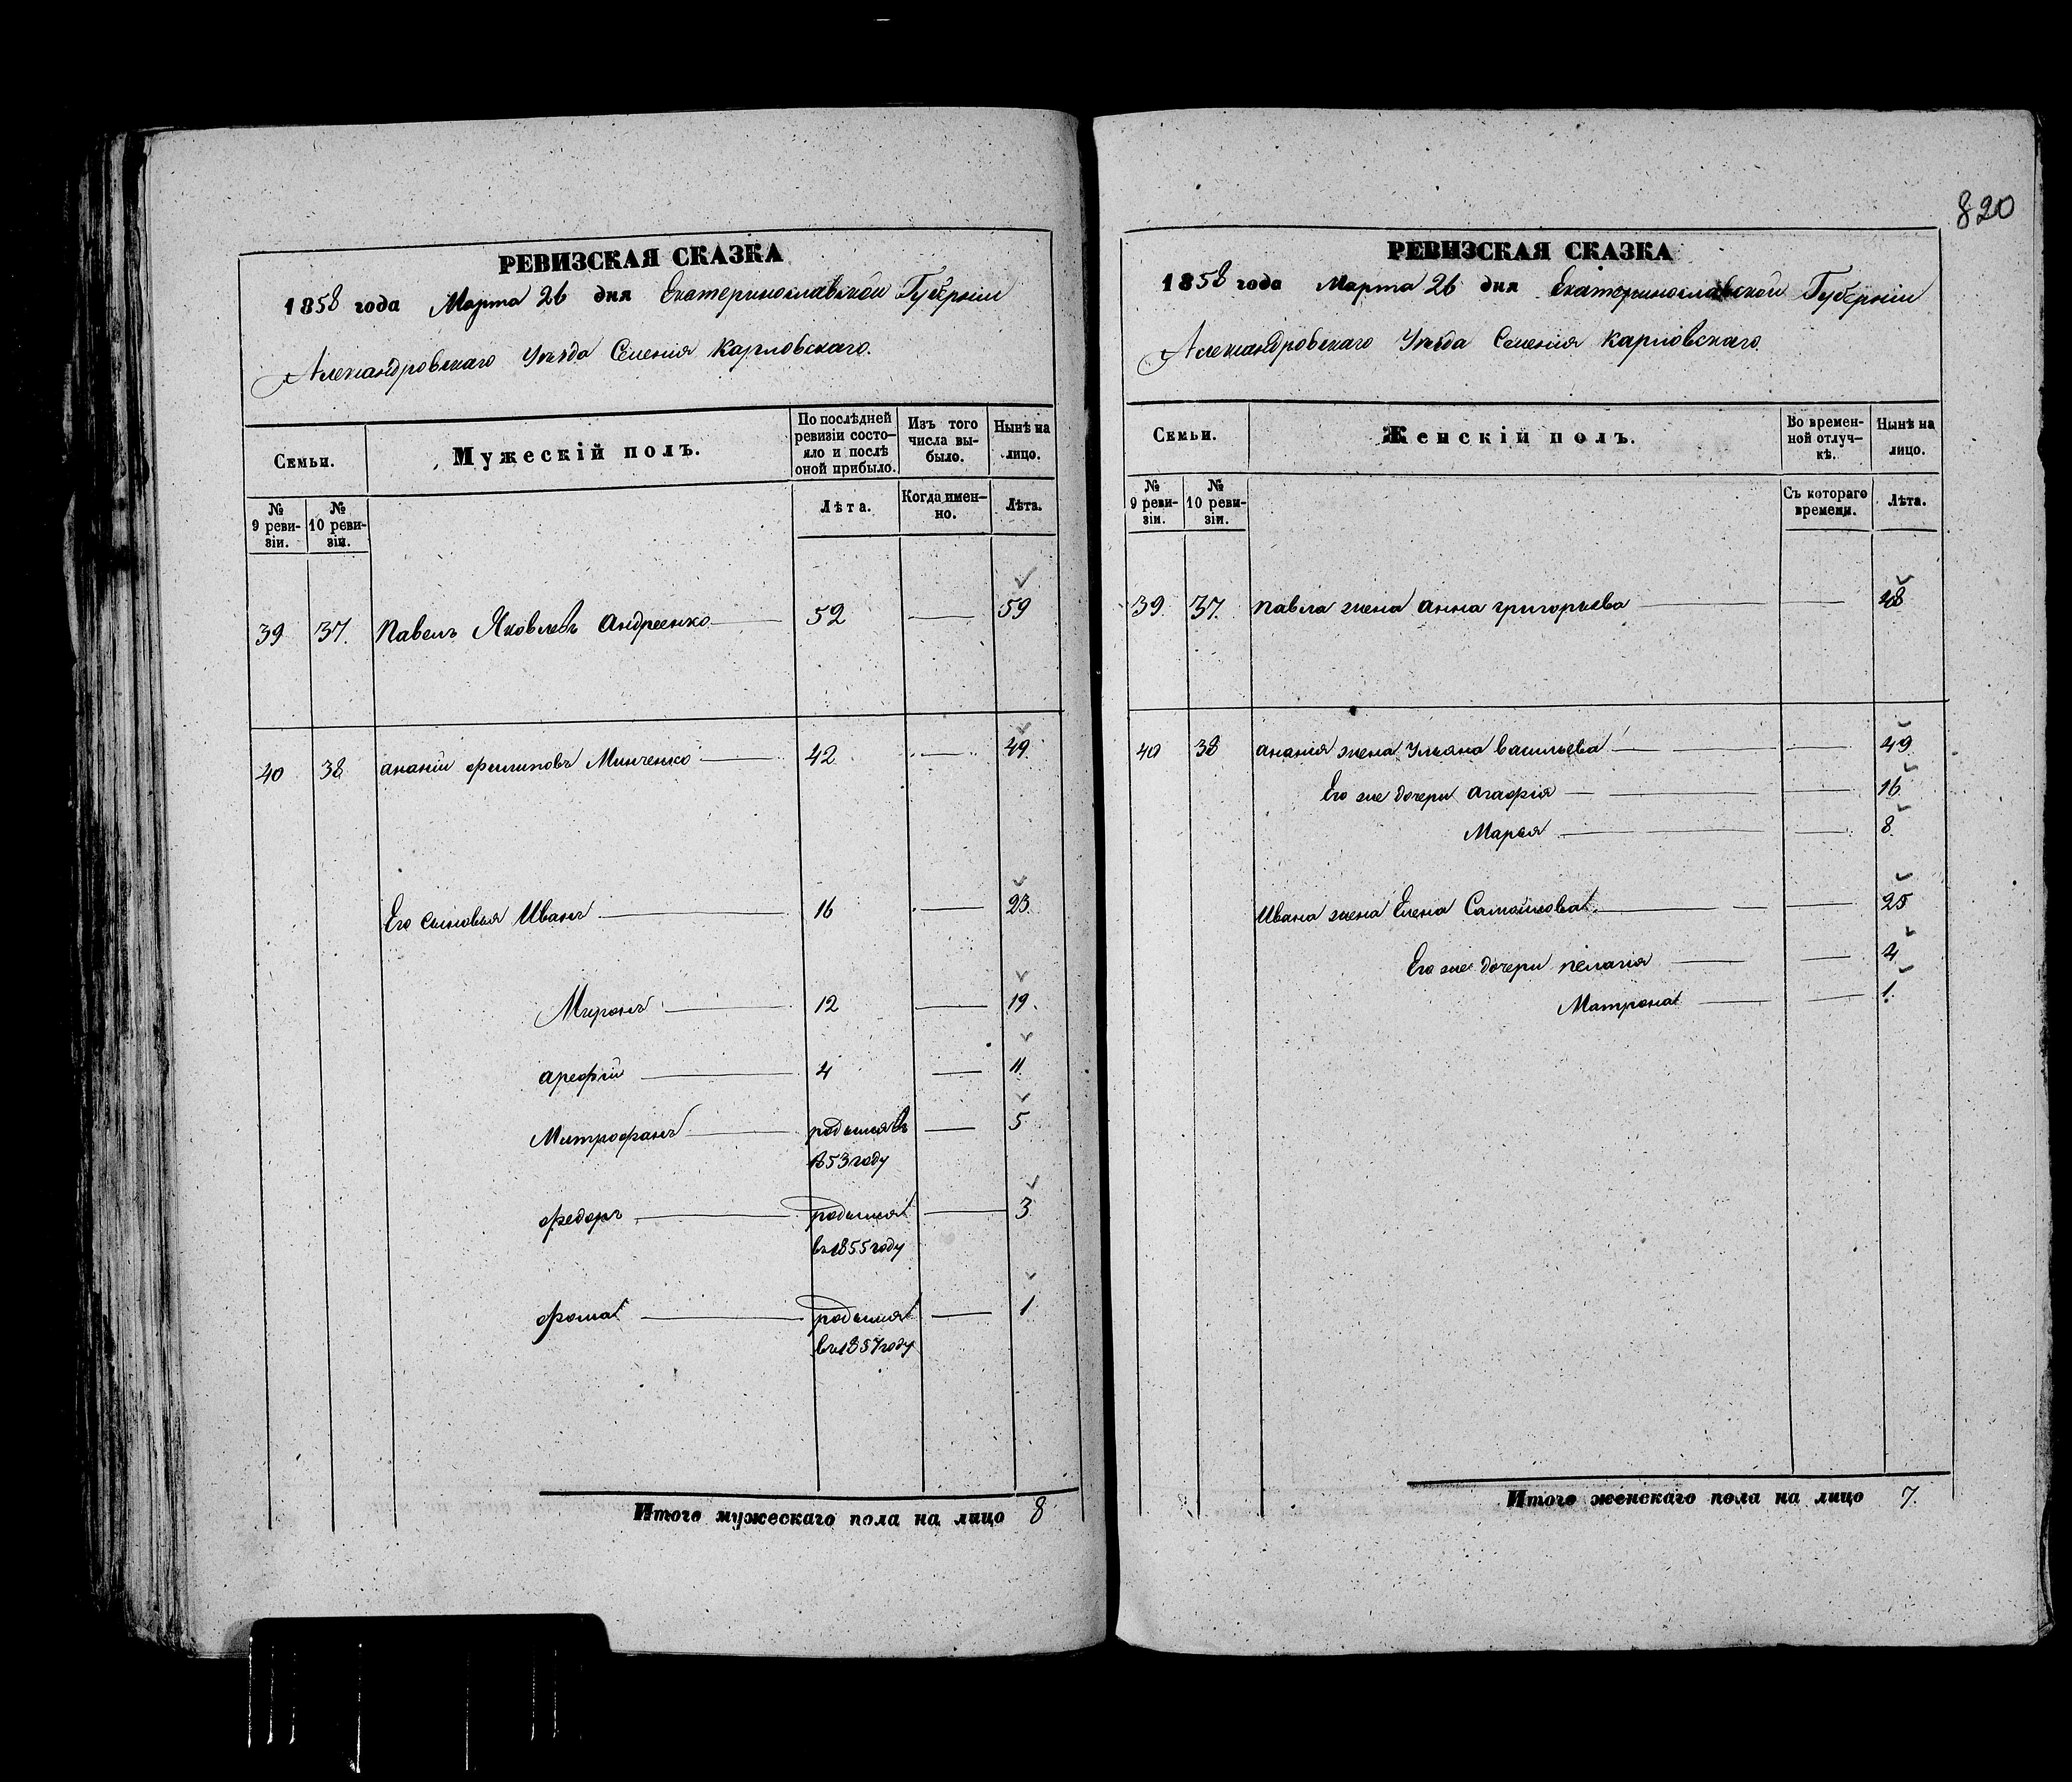 820
РЕВИЗСКАЯ СКАЗКА
1858 года Марта 26 дня Екатеринославской Губерніи
Александровскаго Уѣзда Селенія Карловскаго.
Семьи.
Мужескій полъ.
По послѣдней ревизіи состо-
яло и послѣ оной прибыло.
Изъ того числа вы-
было.
Нынѣ на лицо.
№ 9 реви-
зіи.
№ 10 реви-
зіи.
Лѣта.
Когда имен-
но.
Лѣта.
39 37. Павелъ Яковлевъ Андреенко 52 59
40 38 Ананій Филиповъ Минченко 42 49.
Его сыновья Иванъ 16 23.
Миронъ 12 19.
Арефій 4 11
Митрофанъ родился въ 5
1853 году
Федоръ родился 3
въ 1855 году
Фома родился 1
въ 1857 году
Итого мужескаго пола на лицо 8
РЕВИЗСКАЯ СКАЗКА
1858 года Марта 26 дня Екатеринославской Губерніи
Александровскаго Уѣзда Селенія Карловскаго.
Семьи.
Женскій полъ.
Во времен-
ной отлуч-
кѣ.
Нынѣ на лицо.
№ 9 реви-
зіи.
№ 10 реви-
зіи.
Съ котораго времени.
Лѣта.
39. 37. Павла жена Анна Григорьева
40 38 Ананія жена Ульяна Васильева 49
Его же дочери Агафія 16.
Марья 8.
Ивана жена Елена Самойлова 25
Его же дочери Пелагія 4
Матрона 1.
Итого женскаго пола на лицо 7.